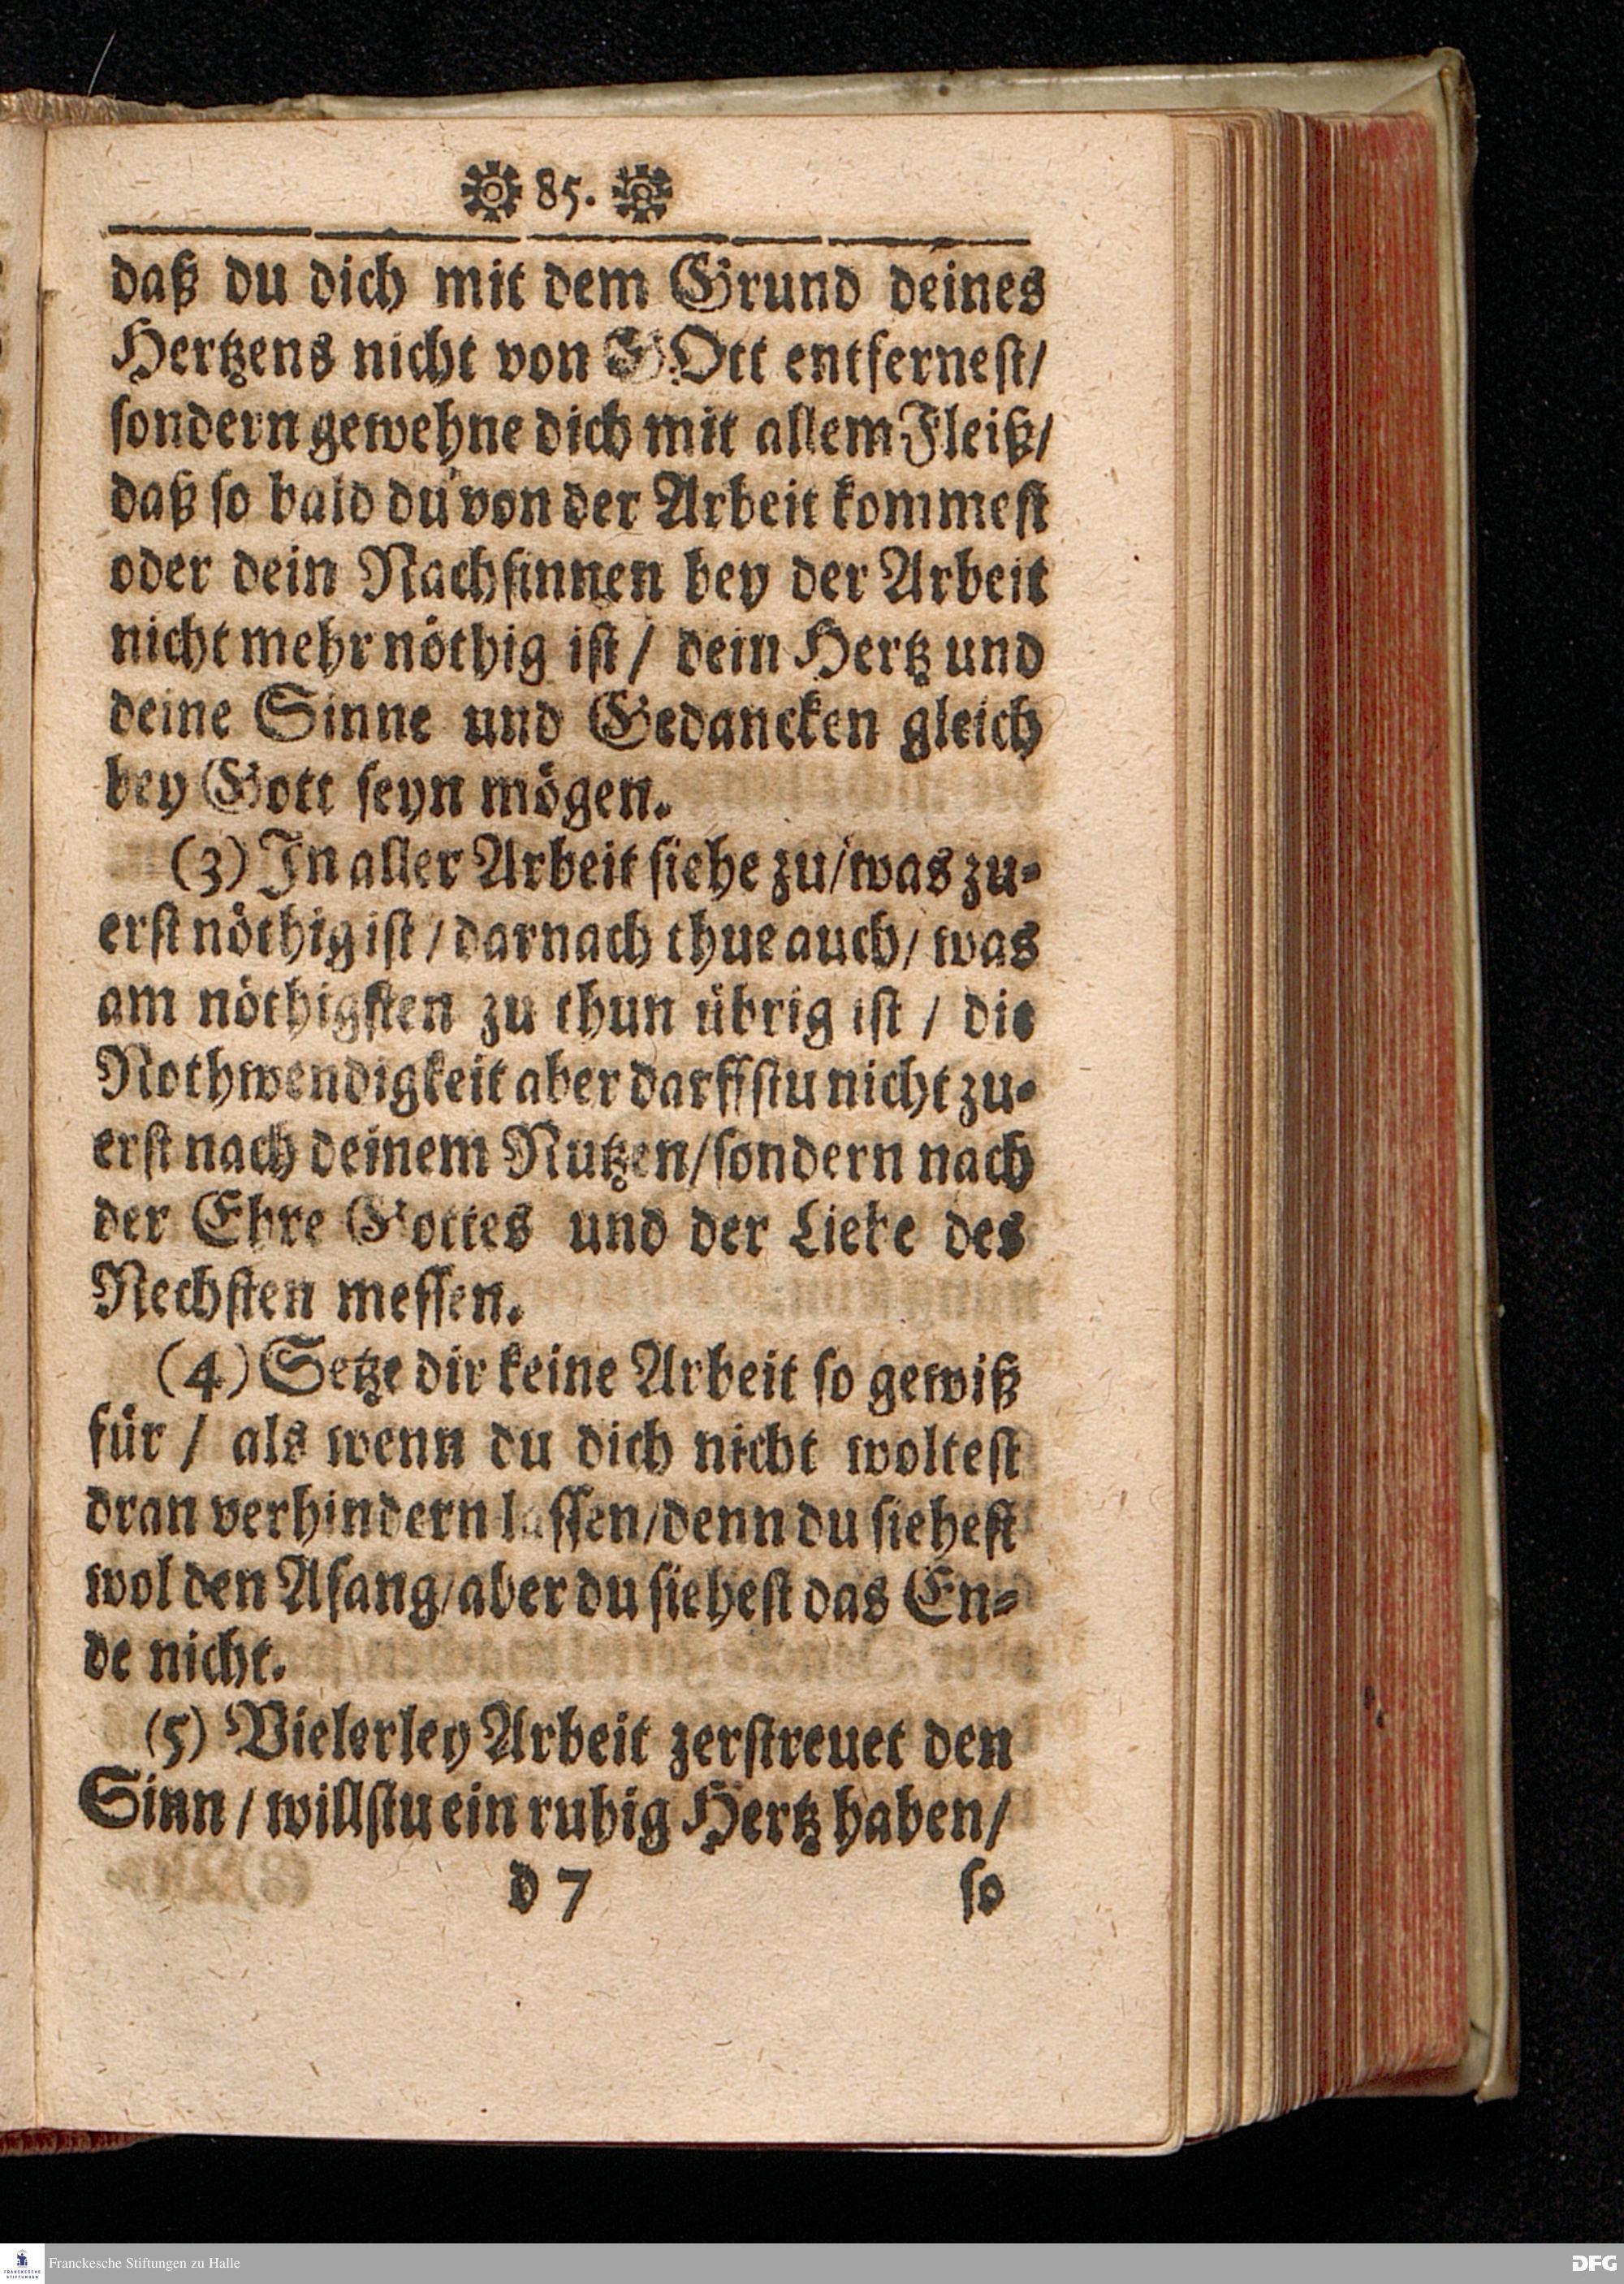 85.
daß du dich mit dem Grund deines
Hertzens nicht von GOtt entfernest/
sondern gewehne dich mit allem Fleiß/
daß so bald du von der Arbeit kommest
oder dein Nachsinnen bey der Arbeit
nicht mehr nöthig ist / dein Hertz und
deine Sinne und Gedancken gleich
bey Gott seyn mögen.
(3) In aller Arbeit siehe zu/was zu-
erst nöthig ist / darnach thue auch/ was
am nöthigsten zu thun übrig ist / die
Nothwendigkeit aber darffstu nicht zu-
erst nach deinem Nutzen/sondern nach
der Ehre Gottes und der Liebe des
Nechsten messen.
(4) Setze dir keine Arbeit so gewiß
für / als wenn du dich nicht woltest
dran verhindern lassen/denn du siehest
wol den Afang/aber du siehest das En-
de nicht.
(5) Vielerley Arbeit zerstreuet den
Sinn / willstu ein ruhig Hertz haben/
d 7 so
Franckesche Stiftungen zu Halle
DFG